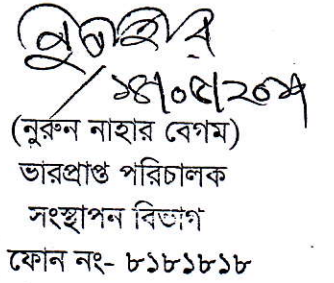 নুরুন নাহার
(নুরুন নাহার বেগম)
ভারপ্রাপ্ত পরিচালক
সংস্থাপন বিভাগ
ফোন নং- ৮১৮১৮১৮